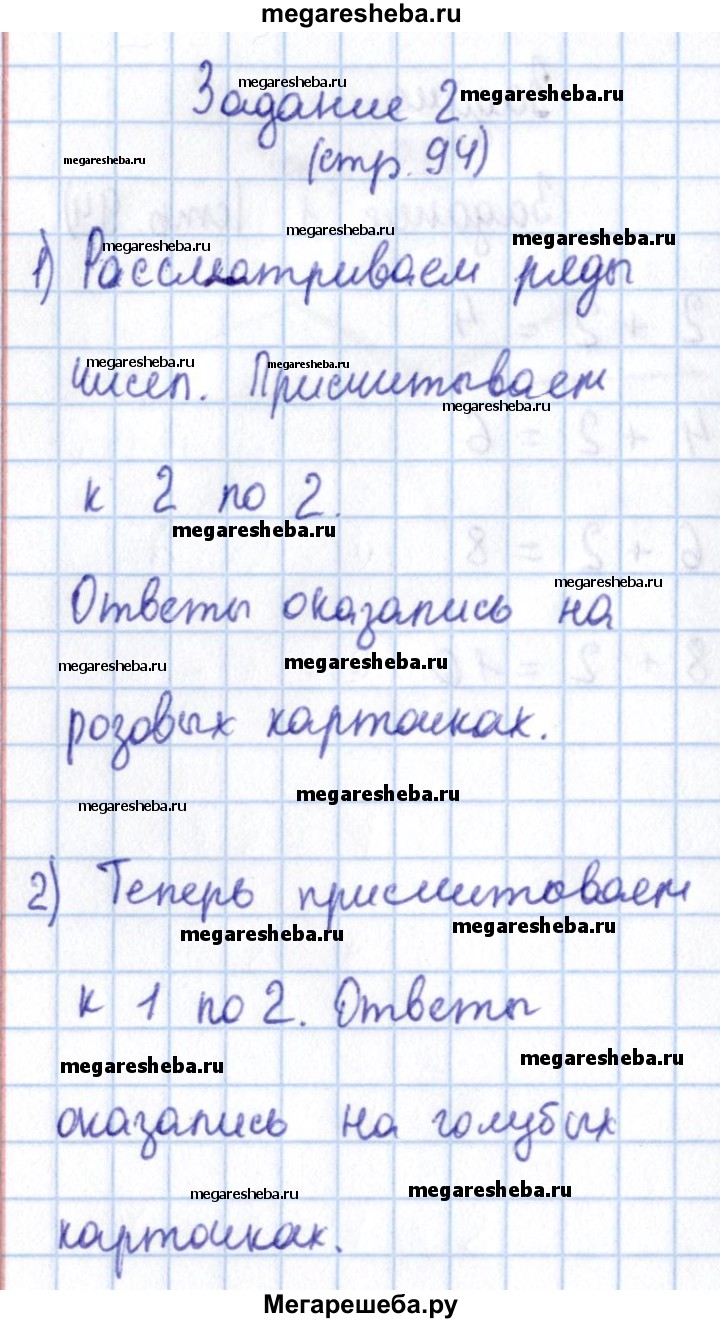 megaresheba.ru
megaresheba.ru
Задание 2
megaresheba.ru
megaresheba.ru
(стр. 94)
megaresheba.ru
megaresheba.ru
megaresheba.ru
1) Рассматриваем ряды
megaresheba.ru
megaresheba.ru
чисел. Присчитываем
megaresheba.ru
к 2 по 2.
megaresheba.ru
megaresheba.ru
Ответы оказались на
megaresheba.ru
megaresheba.ru
розовых карточках.
megaresheba.ru
megaresheba.ru
2) Теперь присчитоваем
megaresheba.ru
megaresheba.ru
к 1 по 2. Ответы
megaresheba.ru
megaresheba.ru
оказались на голубых
megaresheba.ru
megaresheba.ru
карточках.
Мегарешеба.ру